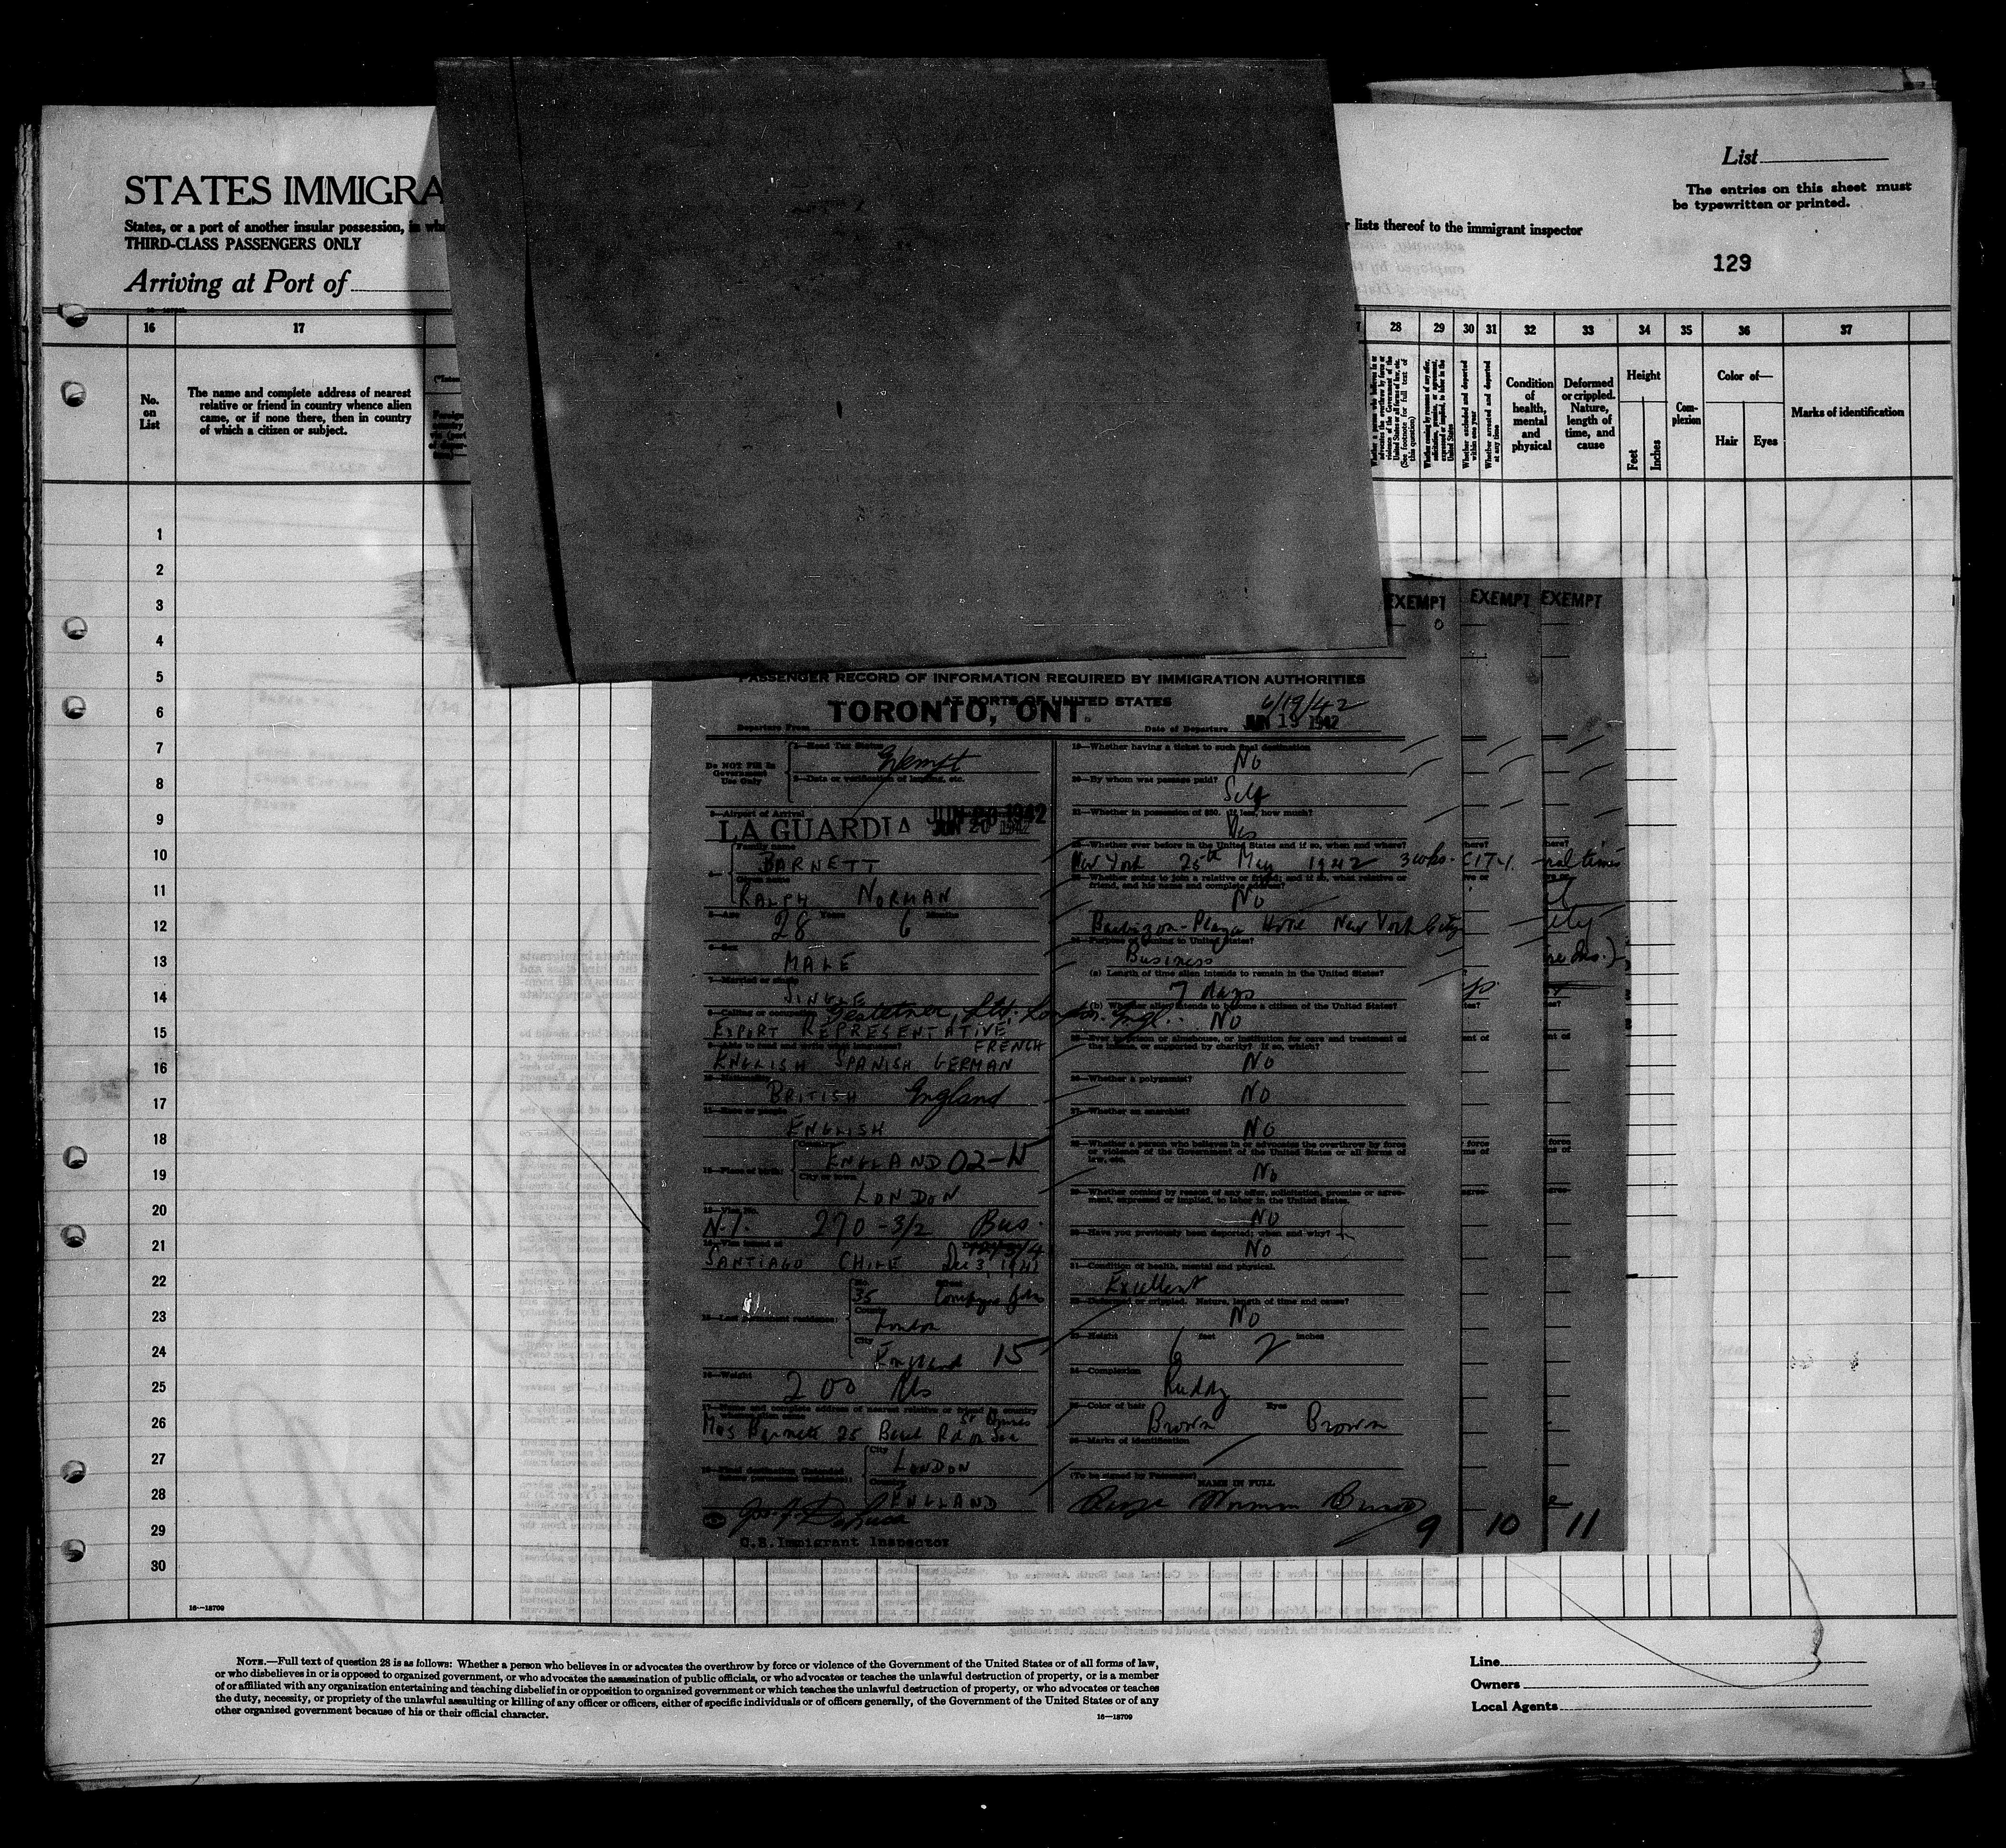 STATES IMMIGRA
States, or a port of another insular possession, in wh
THIRD-CLASS PASSENGERS ONLY
Arriving at Port of
List
The entries on this sheet must
be typewritten or printed.
r lists thereof to the immigrant inspector
129
16 17 28 29 30 31 32 33 34 35 36 37
No.
on
List
The name and complete address of nearest
relative or friend in country whence alien
came, or if none there, then in country
of which a citizen or subject.
Condition
of
health,
mental
and
physical
Deformed
or crippled.
Nature,
length of
time, and
cause
Height
Feet
Inches
Com-
plexion
Color of—
Hair Eyes
Marks of identification
1
2
3
4
5
6
7
8
9
10
11
12
13
14
15
16
17
18
19
20
21
22
23
24
25
26
27
28
29
30
EXEMPT EXEMPT EXEMPT
PASSENGER RECORD OF INFORMATION REQUIRED BY IMMIGRATION AUTHORITIES
AT PORTS OF UNITED STATES
TORONTO, ONT.
6/19/42
Departure From
Date of Departure JUN 19 1942
1—Head Tax Status
Exempt
Do NOT Fill In
Government
Use Only
2—Date or verification of landing, etc.
3—Airport of Arrival
LA GUARDIA JUN 20 1942
Family name
BARNETT
Given name
RALPH NORMAN
5—Age 28 Years 6 Months
6—Sex
MALE
7—Married or single
SINGLE
8—Calling or occupation Gestetner, Ltd. London. Engl.
EXPORT REPRESENTATIVE
9—Able to read and write what languages? FRENCH
ENGLISH SPANISH GERMAN
10—Nationality
BRITISH England
11—Race or people
ENGLISH
12—Place of birth:
Country
ENGLAND 02-W
City or town
LONDON
13—Visa No.
N.I. 270-3/2 Bus.
14—Visa issued at
SANTIAGO CHILE Dec 3, 1941
15—Last permanent residence:
No. Street
35
County
London
City
England 15
16—Weight
200 lbs
17—Name and complete address of nearest relative or friend in country
Mrs Barnett 25
18—Final destination (intended
future permanent residence):
City
LONDON
Country
ENGLAND
U.S. Immigrant Inspector
19—Whether having a ticket to such final destination
No
20—By whom was passage paid?
Self
21—Whether in possession of $50. If less, how much?
Yes
22—Whether ever before in the United States and if so, when and where?
New York 25th May 1942 3 wks.
23—Whether going to join a relative or friend; and if so, what relative or
friend, and his name and complete address?
No
Barbizon-Plaza Hotel New York City
24—Purpose of coming to United States?
Business
(a) Length of time alien intends to remain in the United States?
7 days
(b) Whether alien intends to become a citizen of the United States?
No
25—Ever in prison or almshouse, or institution for care and treatment of
the insane, or supported by charity? If so, which?
No
26—Whether a polygamist?
No
27—Whether an anarchist?
No
28—Whether a person who believes in or advocates the overthrow by force
or violence of the Government of the United States or all forms of
law, etc.
No
29—Whether coming by reason of any offer, solicitation, promise or agree-
ment, expressed or implied, to labor in the United States.
No
30—Have you previously been deported; when and why?
No
31—Condition of health, mental and physical.
Excellent
32—Deformed or crippled. Nature, length of time and cause?
No
33—Height 6 feet 2 inches
34—Complexion
Ruddy
35—Color of hair Eyes
Brown Brown
36—Marks of identification
(To be signed by Passenger)
NAME IN FULL
9 10 11
16—18709
NOTE.—Full text of question 28 is as follows: Whether a person who believes in or advocates the overthrow by force or violence of the Government of the United States or of all forms of law,
or who disbelieves in or is opposed to organized government, or who advocates the assassination of public officials, or who advocates or teaches the unlawful destruction of property, or is a member
of or affiliated with any organization entertaining and teaching disbelief in or opposition to organized government or which teaches the unlawful destruction of property, or who advocates or teaches
the duty, necessity, or propriety of the unlawful assaulting or killing of any officer or officers, either of specific individuals or of officers generally, of the Government of the United States or of any
other organized government because of his or their official character.
16—18709
Line
Owners
Local Agents